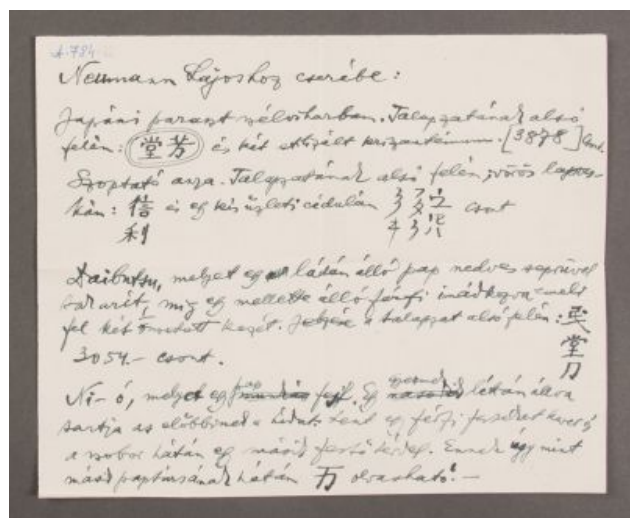 A.784
Neumann Lajoshoz cserébe:
Japáni paraszt szélviharban. Talapzatának alsó
felén: 堂芳 és két stilizált krizantémum. [3878] Csont.
Szoptató anya. Talapzatának alsó felén, vörös
kán: 信 és egy kis üzleti cédulán csont
利
Daibutsu, melyet egy létrán álló pap nedves seprüvel
takarít, míg egy mellette álló férfi imádkozva emeli
fel két kezét. Jelzése a talapzat alsó felén:
3054.- csont. 堂刀
Ni-ó, melyet egy pap fest. Egy létrán állva
tartja az előbbinek a lent egy férfi festéket kever és
a szobor hátán egy másik festő térdel. Ennek úgy mint
másik paptársának hátán 万 olvasható! -